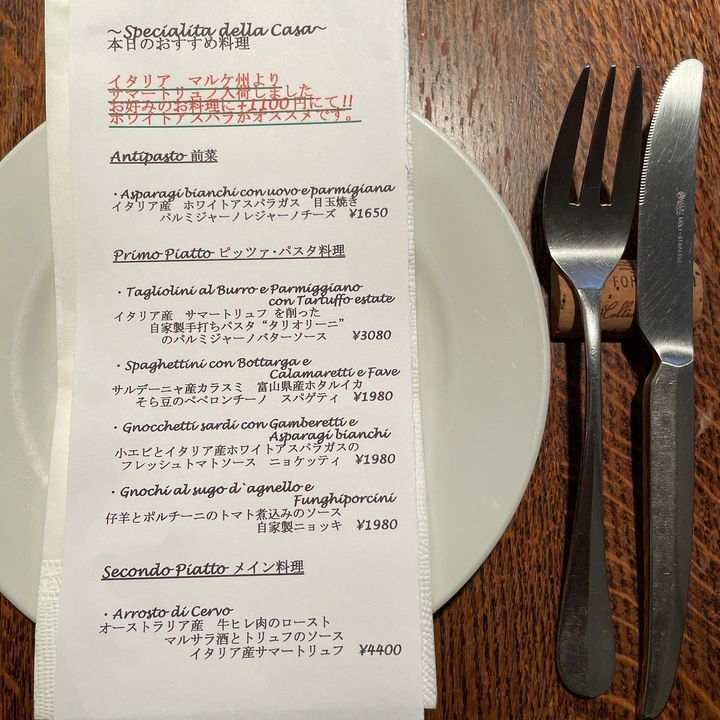 ~Specialita della Casa~
本日のおすすめ料理
イタリア　マルケ州より
サマートリュフ入荷しました
お好みのお料理に+1100円にて!!
ホワイトアスパラがオススメです。
Antipasto 前菜
・Asparagi bianchi con uovo e parmigiana
イタリア産　ホワイトアスパラガス　目玉焼き
パルミジャーノレジャーノチーズ　¥1650
Primo Piatto ピッツァ・パスタ料理
・Tagliolini al Burro e Parmiggiano
con Tartuffo estate
イタリア産　サマートリュフ を削った
自家製手打ちパスタ“タリオリーニ”
のパルミジャーノバターソース　¥3080
・Spaghettini con Bottarga e
Calamaretti e Fave
サルデーニャ産カラスミ　富山県産ホタルイカ
そら豆のペペロンチーノ　スパゲティ　¥1980
・Gnocchetti sardi con Gamberetti e
Asparagi bianchi
小エビとイタリア産ホワイトアスパラガスの
フレッシュトマトソース　ニョケッティ　¥1980
・Gnochi al sugo d`agnello e
Funghiporcini
仔羊とポルチーニのトマト煮込みのソース
自家製ニョッキ　¥1980
Secondo Piatto メイン料理
・Arrosto di Cervo
オーストラリア産　牛ヒレ肉のロースト
マルサラ酒とトリュフのソース
イタリア産サマートリュフ　¥4400